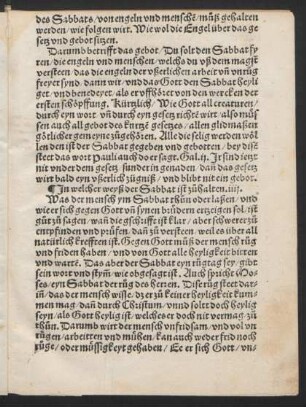 des Sabbats / von engeln vnd menschē / müß gehalten
werden / wie folgen wirt. Wie wol die Engel über das ge
setz vnd gebot sitzen.
Darumb betrifft das gebot. Du solt den Sabbat fy
ren / die engeln vnd menschen / welchs du vß dem magst
versteen / das die engeln der vßerlichen arbeit vn̄ vnrüg
freyer synd / dann wir / vnd das Gott den Sabbat heyli
get / vnd benedeyet / als er vffhöret von den wercken der
ersten schöpffung. Kürtzlich / Wie Gott all creaturen /
durch eyn wort / vn̄ durch eyn gesetz richt wirt / also müs
sen auch all gebot des kurtz gesetzes / allen glidmassen
götlicher gemeyne zügehören. Alle die selig werden wöl
len den ist der Sabbat gegeben vnd gebotten / bey dise
steet das wort Pauli auch do er sagt. Gal. ij. Ir sind ietzt
nit vnder dem gesetz / sunder in genaden / dan̄ das gesetz
wirt bald eyn vßerlich zügniß / vnd blibt nit eyn gebot.
¶ In welcher weyß der Sabbat ist zü halten. iiij.
Was der mensch ym Sabbat thün oder lassen / vnd
wie er sich gegen Gott vn̄ synen brüdern ertzeigen sol / ist
güt zü sagen / wan̄ die geschrifft ist klar / aber schwerer zü
entpfinden vnd prüfen / dan̄ zü versteen / weil es über all
natürlich krefften ist. Gegen Gott müß der mensch rüg
vnd friden haben / vnd von Gott alle heyligkeit bitten
vnd wart. Das aber der Sabbat eyn rügtag sey / gibt
sein wort vnd stym̄ / wie obgesagt ist. Auch spricht Mo-
ses / eyn Sabbat der rüg des herren. Dise rüg steet dar-
in̄ / das der mensch wisse / dz er zü keiner heyligkeit kum-
men mag / dan̄ durch Christum / vnnd solt doch heylig
seyn / als Gott heylig ist / welches er doch nit vermag zü
thün. Darumb wirt der mensch vnfridsam / vnd vol vn
rügen / arbeiten vnd mühen / kan auch weder frid noch
rüge / oder müssigkeyt gehaben / Ee er sich Gott / vn-